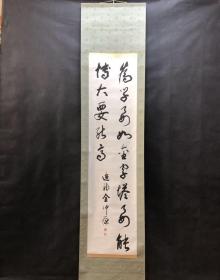 為学要如金字塔要能
博大要能高